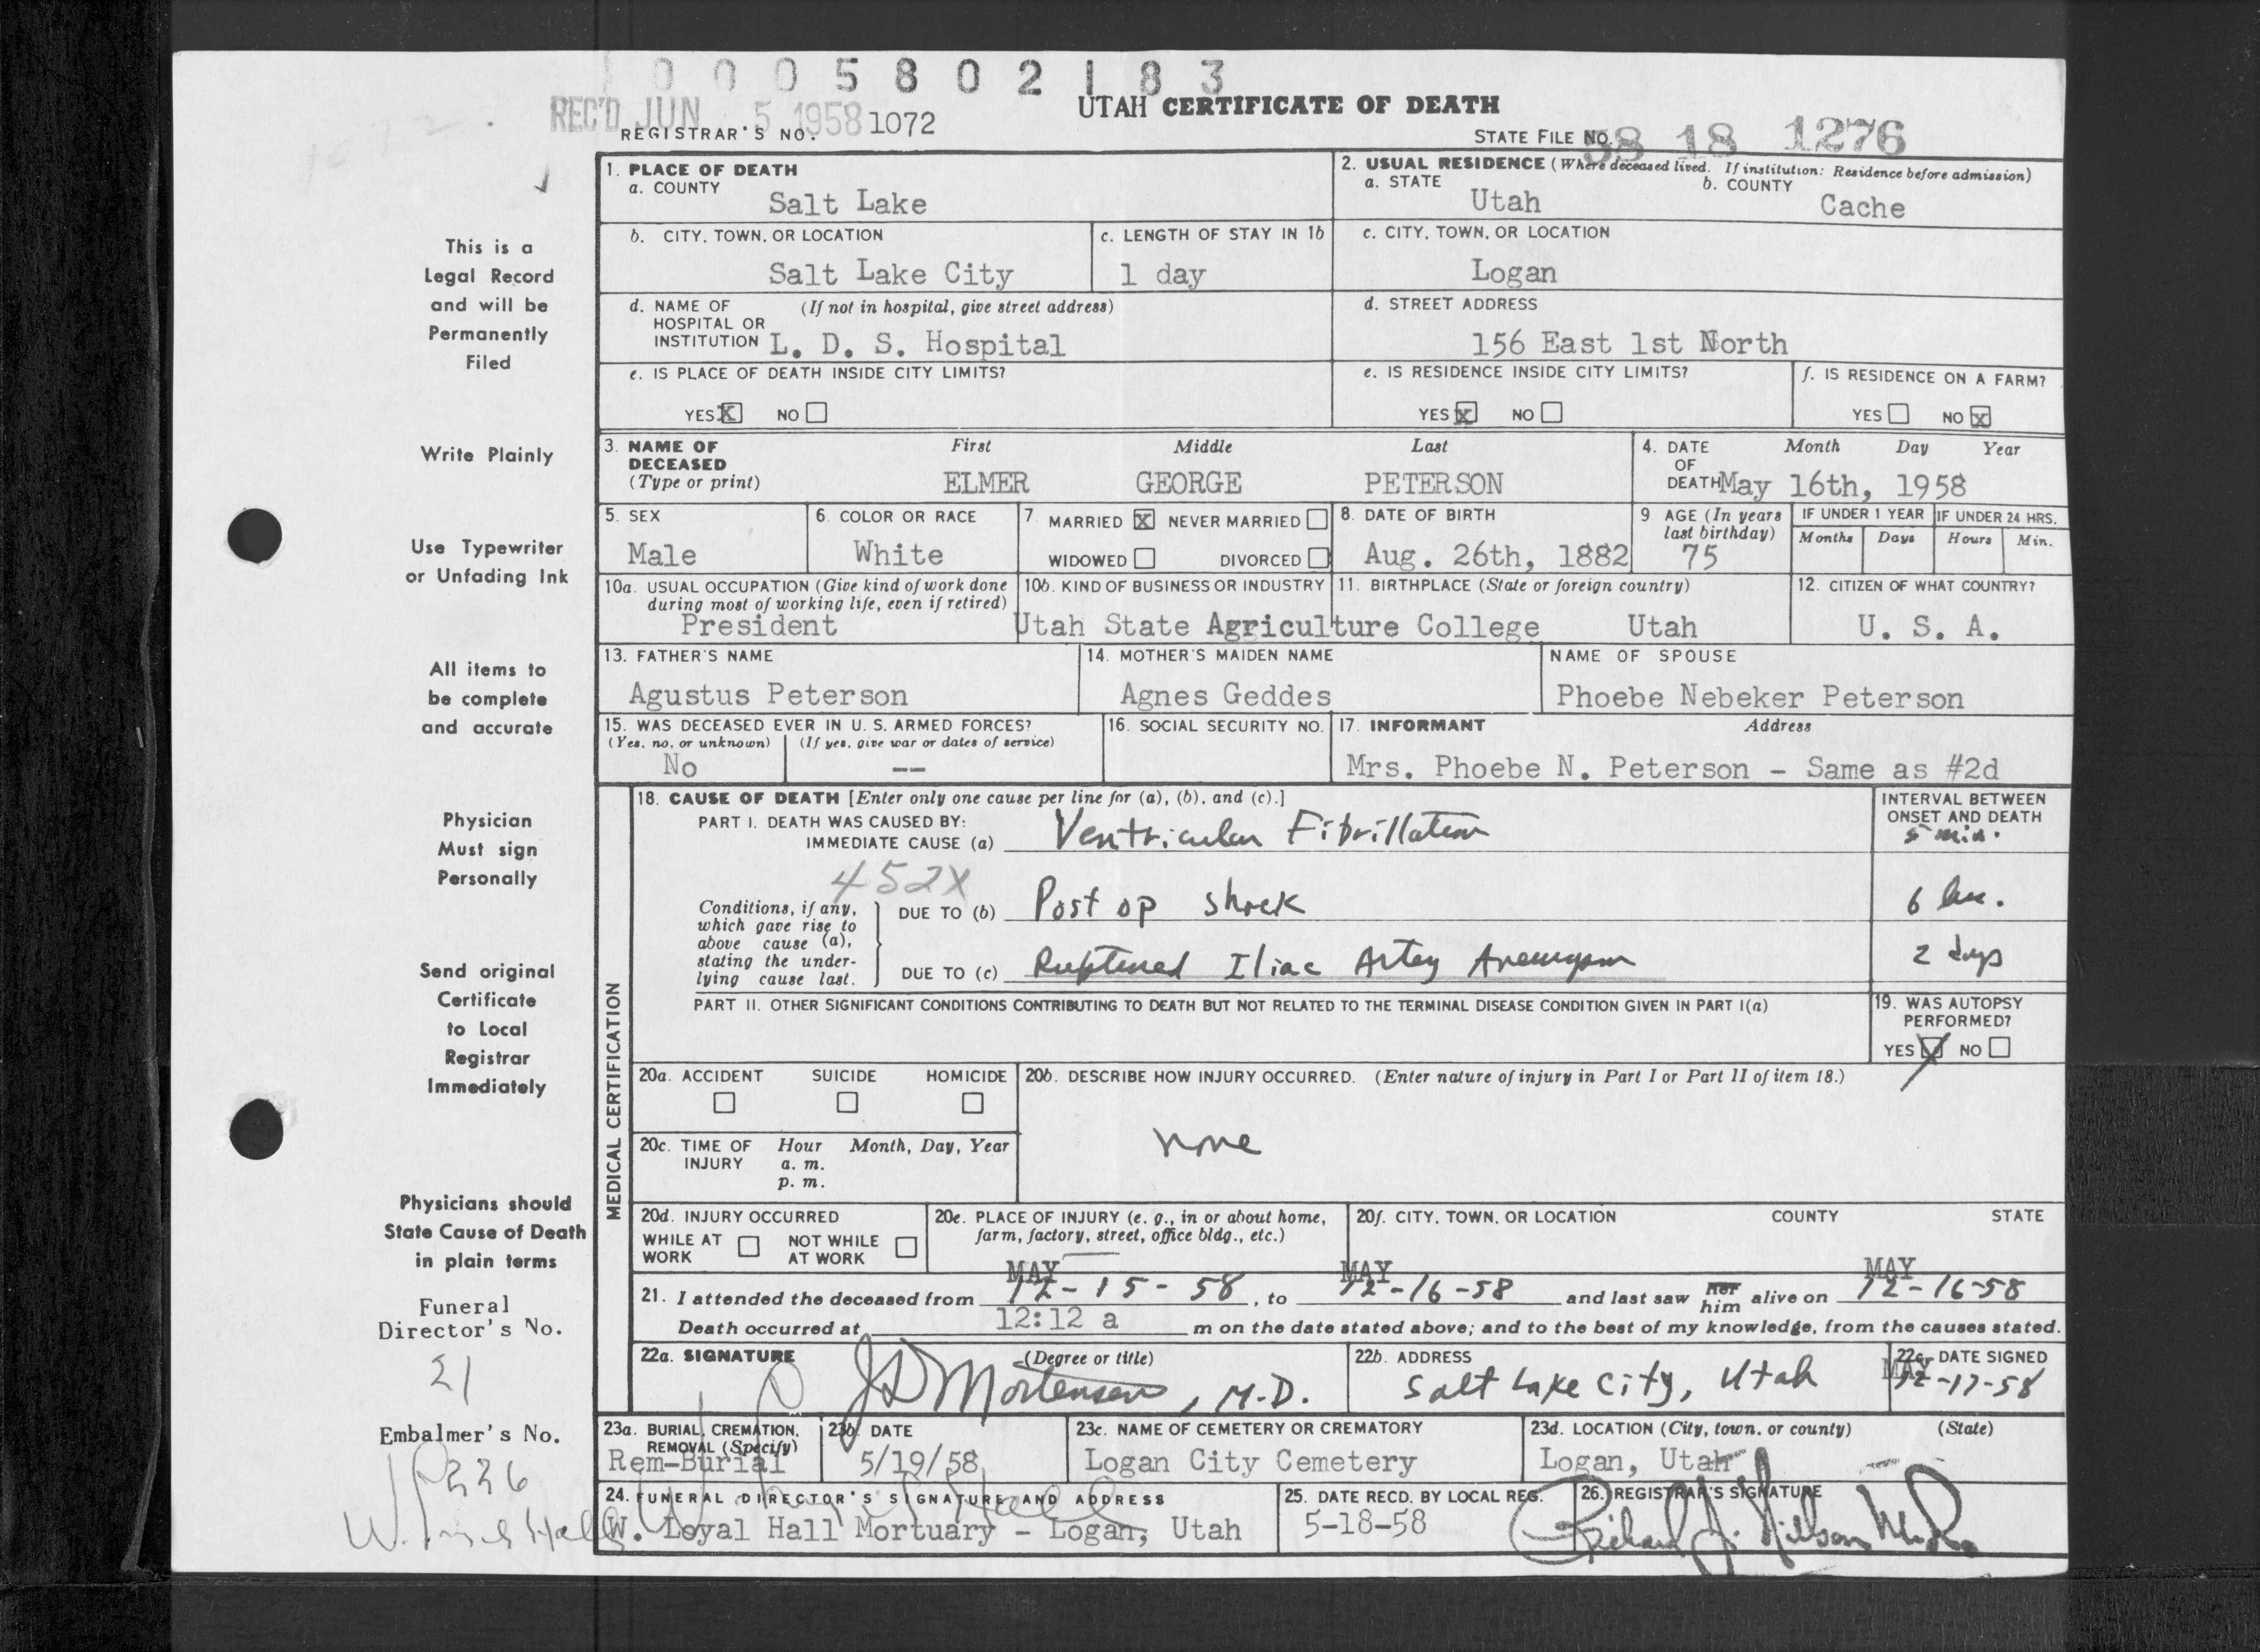 0 0 0 5 8 0 2 1 8 3
REC'D JUN 5 1958
UTAH CERTIFICATE OF DEATH
REGISTRAR'S NO. 1072
STATE FILE NO. 58 18 1276
1. PLACE OF DEATH
a. COUNTY
Salt Lake
2. USUAL RESIDENCE (Where deceased lived. If institution: Residence before admission)
a. STATE
Utah
b. COUNTY
Cache
b. CITY, TOWN, OR LOCATION
Salt Lake City
c. LENGTH OF STAY IN 1b
1 day
c. CITY, TOWN, OR LOCATION
Logan
d. NAME OF HOSPITAL OR INSTITUTION (If not in hospital, give street address)
L. D. S. Hospital
d. STREET ADDRESS
156 East 1st North
e. IS PLACE OF DEATH INSIDE CITY LIMITS?
YES X NO
e. IS RESIDENCE INSIDE CITY LIMITS?
YES X NO
f. IS RESIDENCE ON A FARM?
YES NO X
3. NAME OF DECEASED (Type or print)
First Middle Last
ELMER GEORGE PETERSON
4. DATE OF DEATH
Month Day Year
May 16th, 1958
5. SEX
Male
6. COLOR OR RACE
White
7. MARRIED X NEVER MARRIED
WIDOWED DIVORCED
8. DATE OF BIRTH
Aug. 26th, 1882
9 AGE (In years last birthday)
75
IF UNDER 1 YEAR
Months Days
IF UNDER 24 HRS.
Hours Min.
10a. USUAL OCCUPATION (Give kind of work done during most of working life, even if retired)
President
10b. KIND OF BUSINESS OR INDUSTRY
Utah State Agriculture College
11. BIRTHPLACE (State or foreign country)
Utah
12. CITIZEN OF WHAT COUNTRY?
U. S. A.
13. FATHER'S NAME
Agustus Peterson
14. MOTHER'S MAIDEN NAME
Agnes Geddes
NAME OF SPOUSE
Phoebe Nebeker Peterson
15. WAS DECEASED EVER IN U. S. ARMED FORCES?
(Yes, no, or unknown) (If yes, give war or dates of service)
No --
16. SOCIAL SECURITY NO.
17. INFORMANT Address
Mrs. Phoebe N. Peterson - Same as #2d
MEDICAL CERTIFICATION
18. CAUSE OF DEATH [Enter only one cause per line for (a), (b), and (c).]
PART I. DEATH WAS CAUSED BY:
IMMEDIATE CAUSE (a) Ventricular Fibrillation
INTERVAL BETWEEN ONSET AND DEATH
5 min.
452X
Conditions, if any, which gave rise to above cause (a), stating the underlying cause last.
DUE TO (b) Post op shock
6 hrs.
DUE TO (c) Ruptured Iliac Artery Aneurysm
2 days
PART II. OTHER SIGNIFICANT CONDITIONS CONTRIBUTING TO DEATH BUT NOT RELATED TO THE TERMINAL DISEASE CONDITION GIVEN IN PART I(a)
19. WAS AUTOPSY PERFORMED?
YES X NO
20a. ACCIDENT SUICIDE HOMICIDE
20b. DESCRIBE HOW INJURY OCCURRED. (Enter nature of injury in Part I or Part II of item 18.)
none
20c. TIME OF INJURY
Hour Month, Day, Year
a. m.
p. m.
20d. INJURY OCCURRED
WHILE AT WORK NOT WHILE AT WORK
20e. PLACE OF INJURY (e. g., in or about home, farm, factory, street, office bldg., etc.)
20f. CITY, TOWN, OR LOCATION COUNTY STATE
MAY MAY MAY
21. I attended the deceased from 12-15-58, to 12-16-58 and last saw her him alive on 12-16-58
Death occurred at 12:12 a m on the date stated above; and to the best of my knowledge, from the causes stated.
22a. SIGNATURE (Degree or title)
JD Mortensen, M.D.
22b. ADDRESS
Salt Lake City, Utah
22c. DATE SIGNED
MAY
12-17-58
23a. BURIAL, CREMATION, REMOVAL (Specify)
Rem-Burial
23b. DATE
5/19/58
23c. NAME OF CEMETERY OR CREMATORY
Logan City Cemetery
23d. LOCATION (City, town, or county) (State)
Logan, Utah
24. FUNERAL DIRECTOR'S SIGNATURE AND ADDRESS
W. Loyal Hall Mortuary - Logan, Utah
25. DATE RECD. BY LOCAL REG.
5-18-58
26. REGISTRAR'S SIGNATURE
This is a
Legal Record
and will be
Permanently
Filed
Write Plainly
Use Typewriter
or Unfading Ink
All items to
be complete
and accurate
Physician
Must sign
Personally
Send original
Certificate
to Local
Registrar
Immediately
Physicians should
State Cause of Death
in plain terms
Funeral
Director's No.
21
Embalmer's No.
336